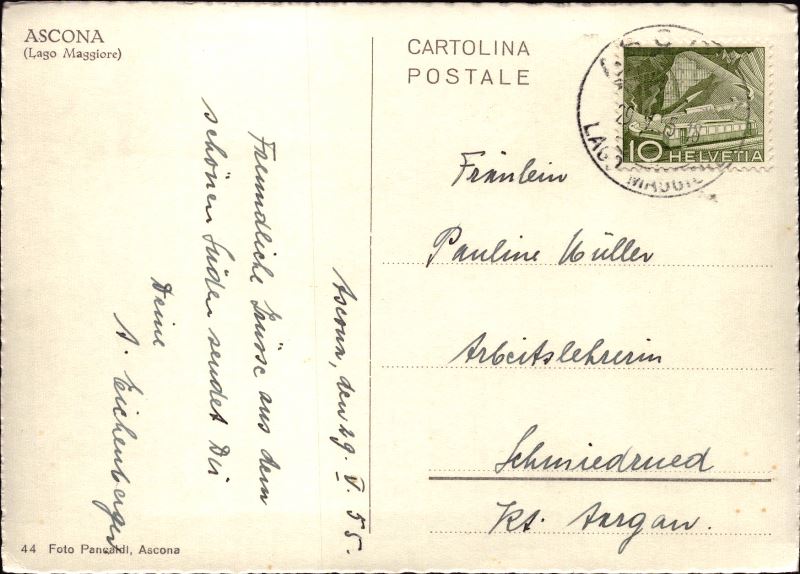 ASCONA
(Lago Maggiore)
CARTOLINA
POSTALE
10 HELVETIA
LAGO MAGGIORE
Fräulein
Pauline Müller
Arbeitslehrerin
Schmiedrued
Kt. Aargau.
Ascona, den 29. V. 55.
Freundliche Grüsse aus dem
schönen Süden sendet Dir
Deine
A. Eichenberger
44 Foto Pancaldi, Ascona